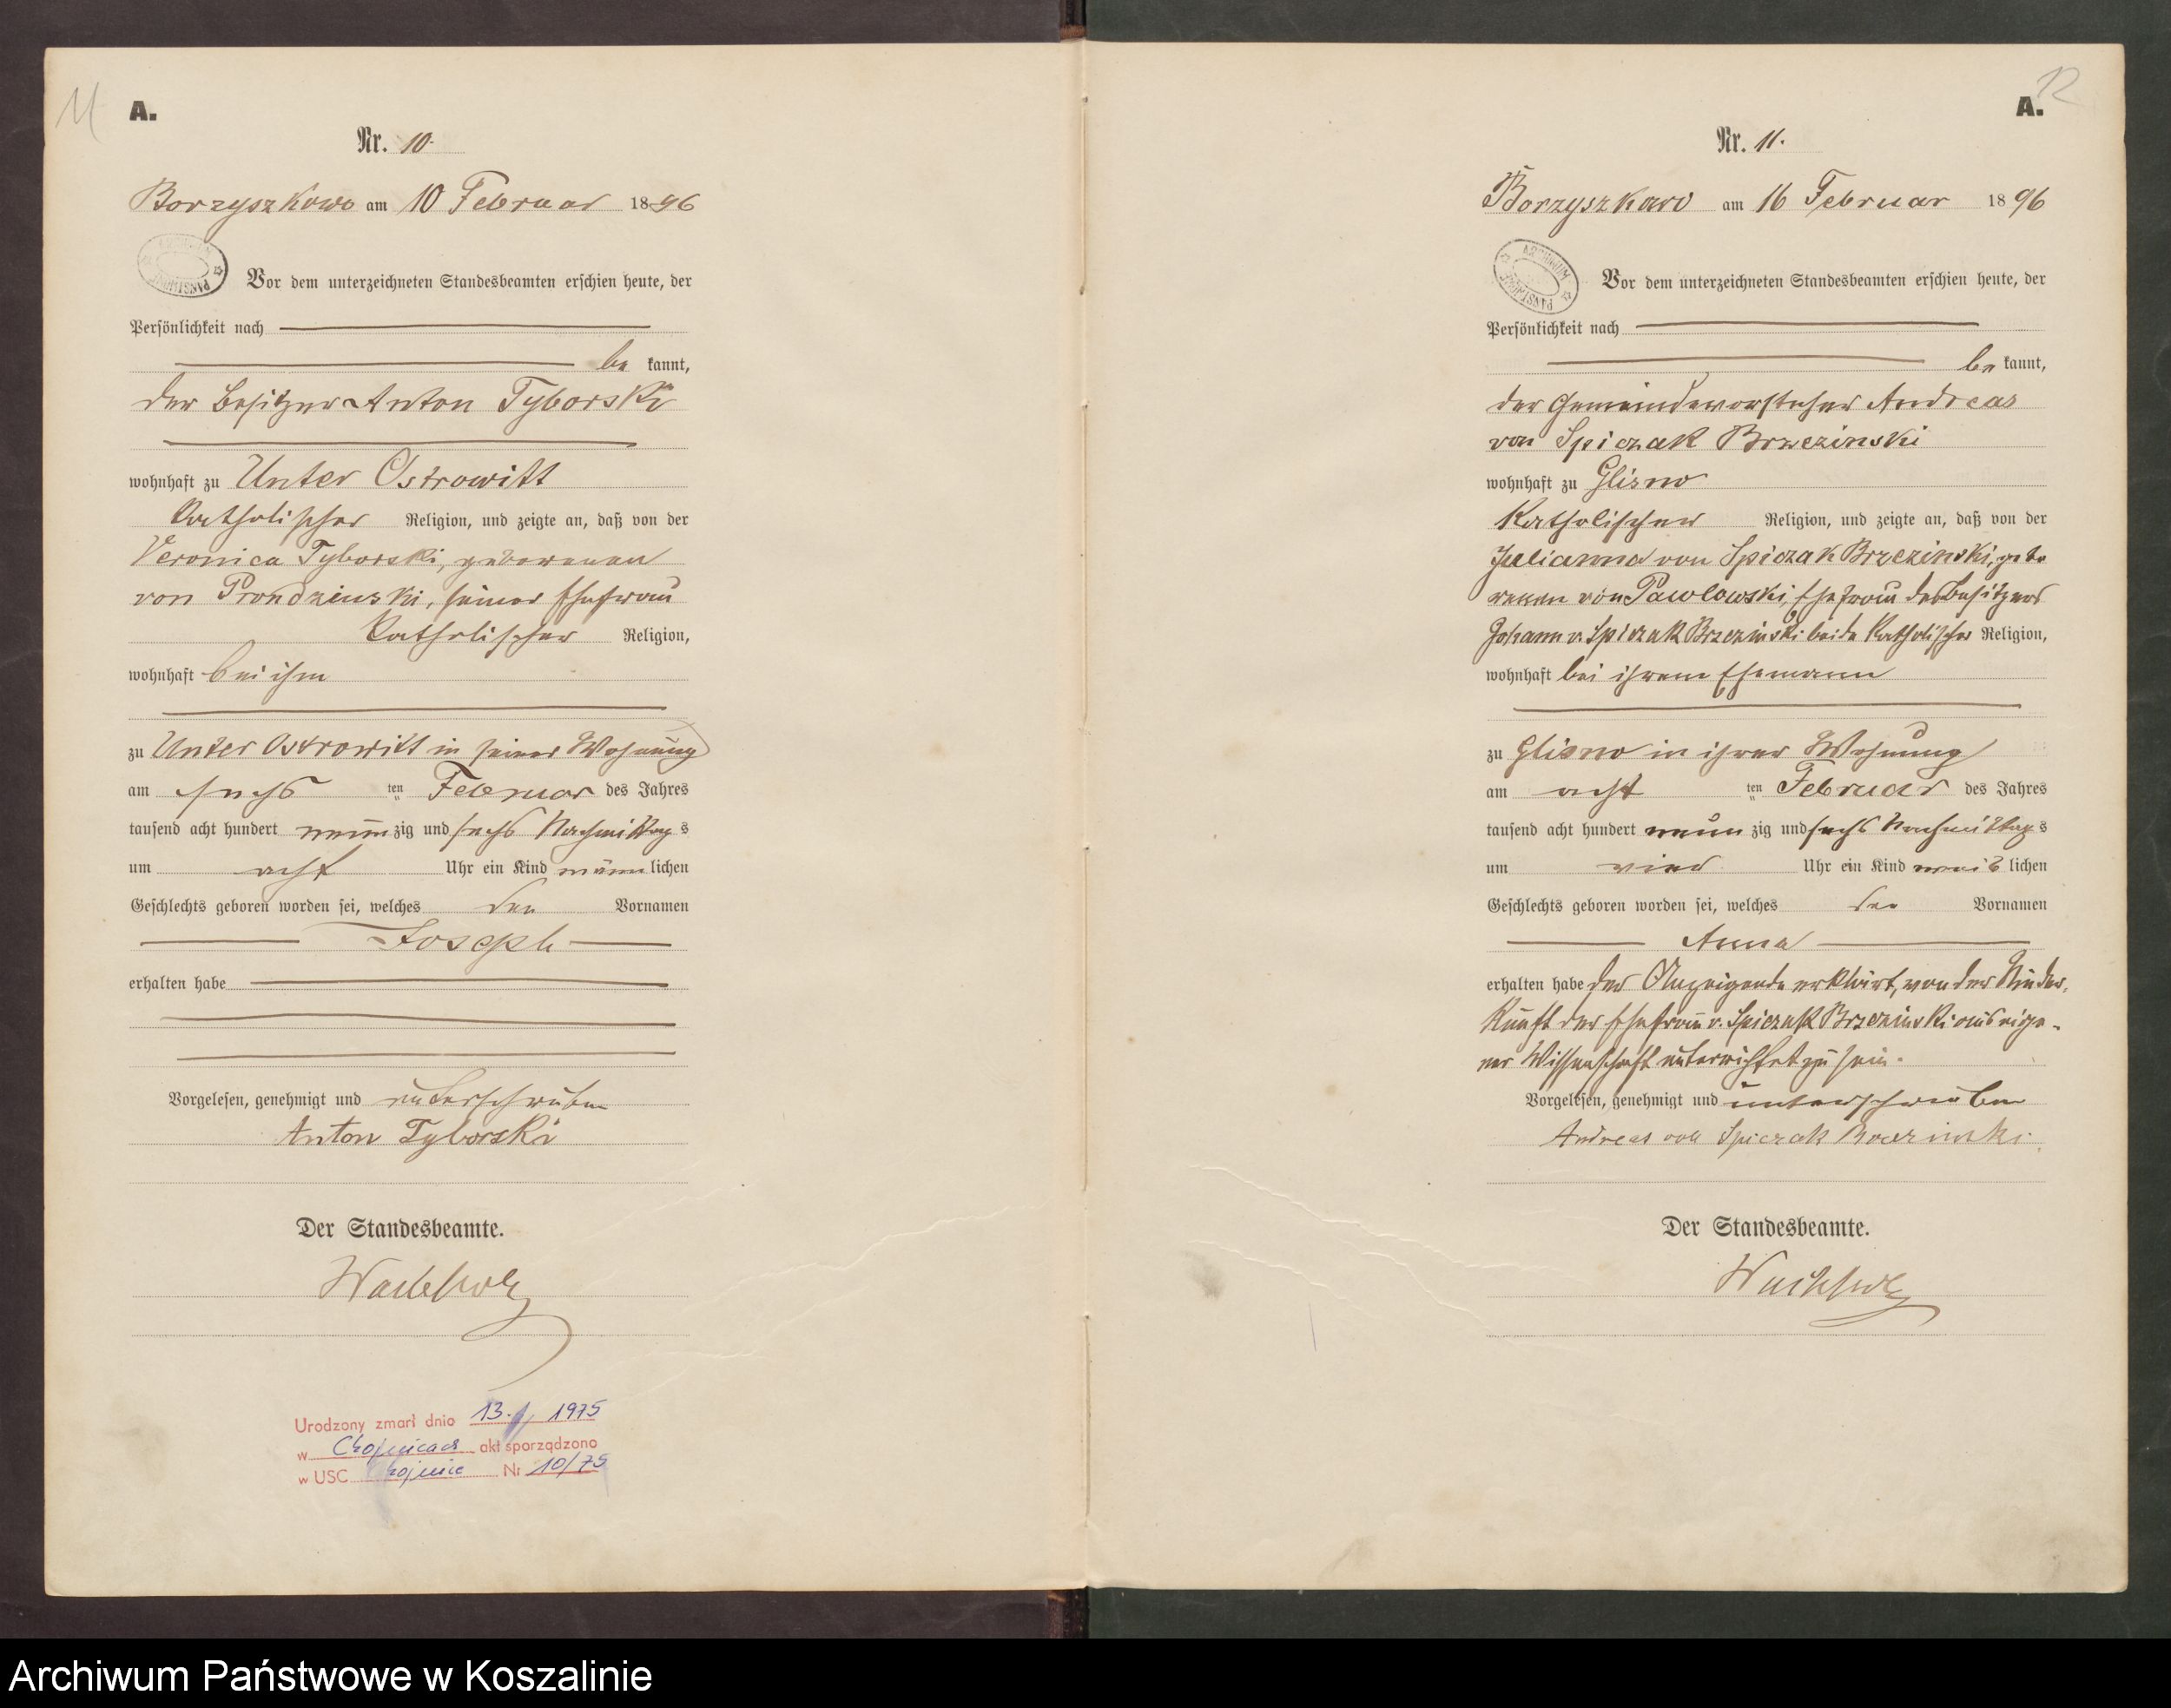 11
A.
Nr. 10.
Borzyszkowo am 10 Februar 1896
Vor dem unterzeichneten Standesbeamten erschien heute, der
Persönlichkeit nach
be kannt,
der Besitzer Anton Tyborski
wohnhaft zu Unter Ostrowitt
katholischer Religion, und zeigte an, daß von der
Veronica Tyborski, geborenen
von Prondzinski, seiner Ehefrau
katholischer Religion,
wohnhaft bei ihm
zu Unter Ostrowitt in seiner Wohnung
am sechs ten Februar des Jahres
tausend acht hundert neun zig und sechs Nachmittag s
um acht Uhr ein Kind männ lichen
Geschlechts geboren worden sei, welches den Vornamen
Joseph
erhalten habe
Vorgelesen, genehmigt und unterschrieben
Anton Tyborski
Der Standesbeamte.
Wachholz
Urodzony zmarł dnia 13. 1975
w Chojnicach akt sporządzono
w USC Chojnice Nr 10/75
12
A.
Nr. 11.
Borzyszkowo am 16 Februar 1896
ARCHIWUM PAŃSTWOWE
Vor dem unterzeichneten Standesbeamten erschien heute, der
Persönlichkeit nach
be kannt,
der Gemeindevorsteher Andreas
von Spiczak Brzezinski
wohnhaft zu Glisno
katholischer Religion, und zeigte an, daß von der
Julianna von Spiczak Brzezinski, gebo
renen von Pawlowski, Ehefrau des Besitzers
Johann v. Spiczak Brzezinski beide katholischer Religion,
wohnhaft bei ihrem Ehemann
zu Glisno in ihrer Wohnung
am acht ten Februar des Jahres
tausend acht hundert neun zig und sechs Nachmittag s
um vier Uhr ein Kind weib lichen
Geschlechts geboren worden sei, welches den Vornamen
Anna
erhalten habe Der Anzeigende erklärt, von der Nieder-
kunft der Ehefrau v. Spiczak Brzezinski aus eige-
ner Wissenschaft unterrichtet zu sein.
Vorgelesen, genehmigt und unterschrieben
Andreas von Spiczak Brzezinski
Der Standesbeamte.
Wachholz
Archiwum Państwowe w Koszalinie